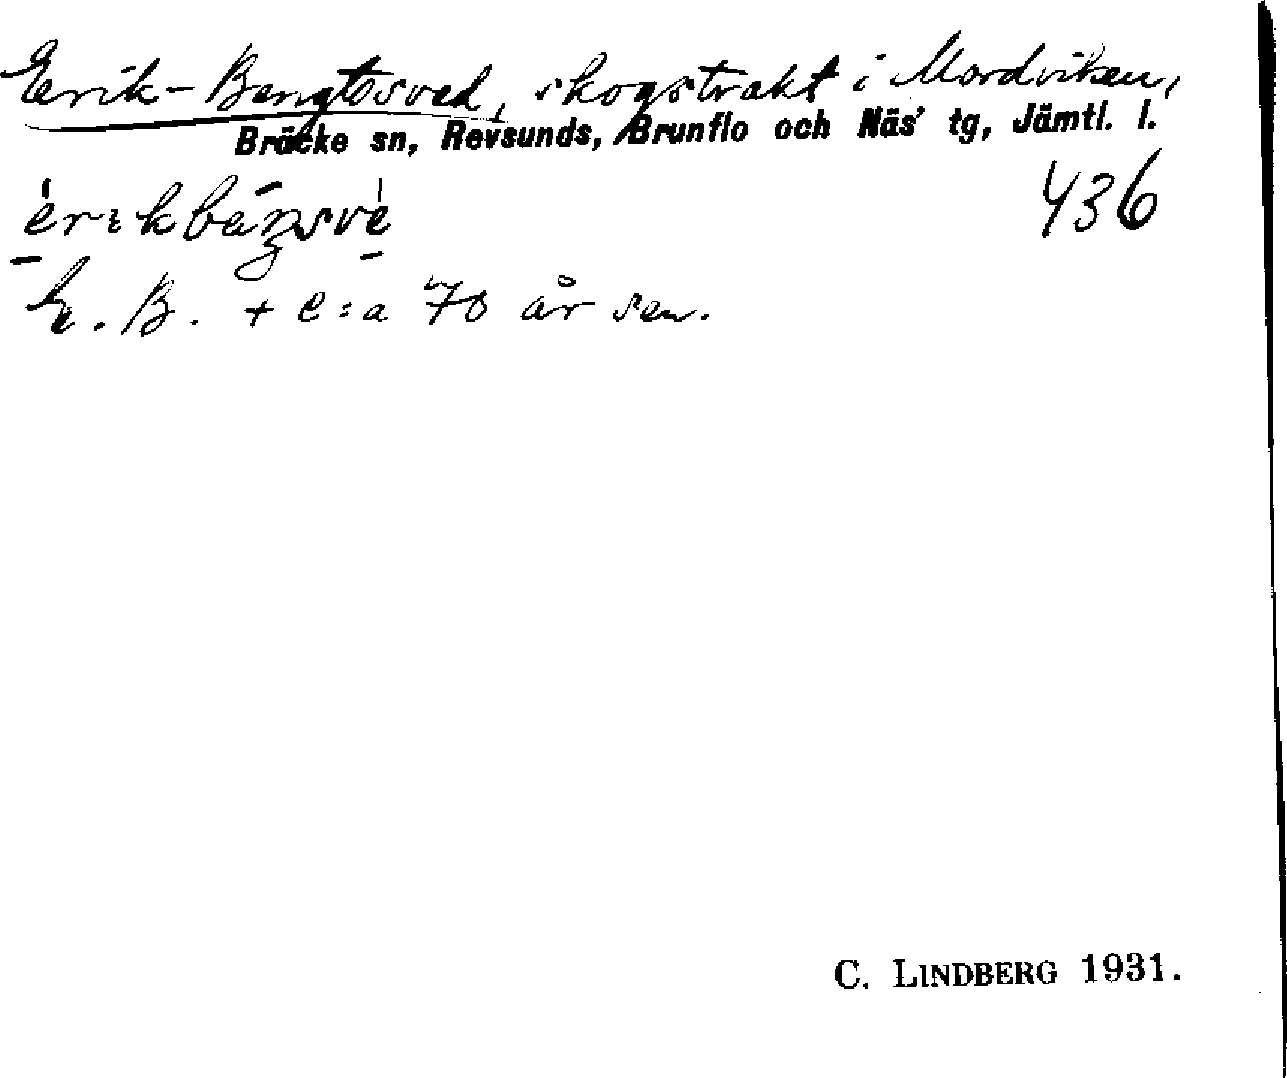 Erik-Bengtsved, skogstrakt i Mordviken,
Bräcke sn, Revsunds, Brunflo och Näs' tg, Jämtl. l.
436
E. B. + c:a 70 år sen.
C. LINDBERG 1931.